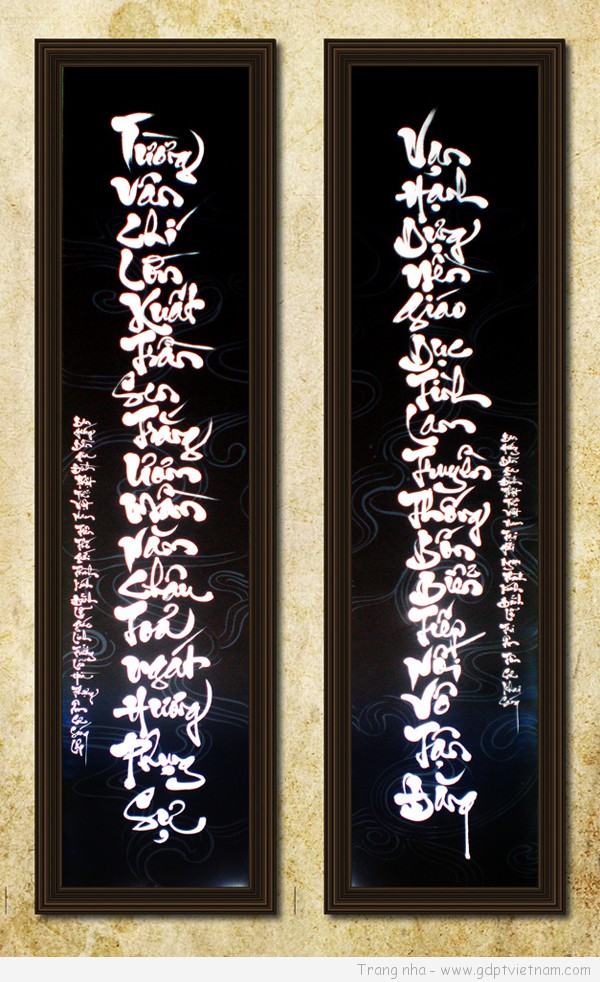 Tường Vân Chí Lớn Xuất Trần Sen Trắng Ươm Mầm Năm Châu Toả Ngát Hương Phụng Sự
Vạn Hạnh Dựng Nền Giáo Dục Tình Lam Truyền Thống Bốn Biển Tiếp Nối Vô Tận Đăng
Trang nha - www.gdptvietnam.com